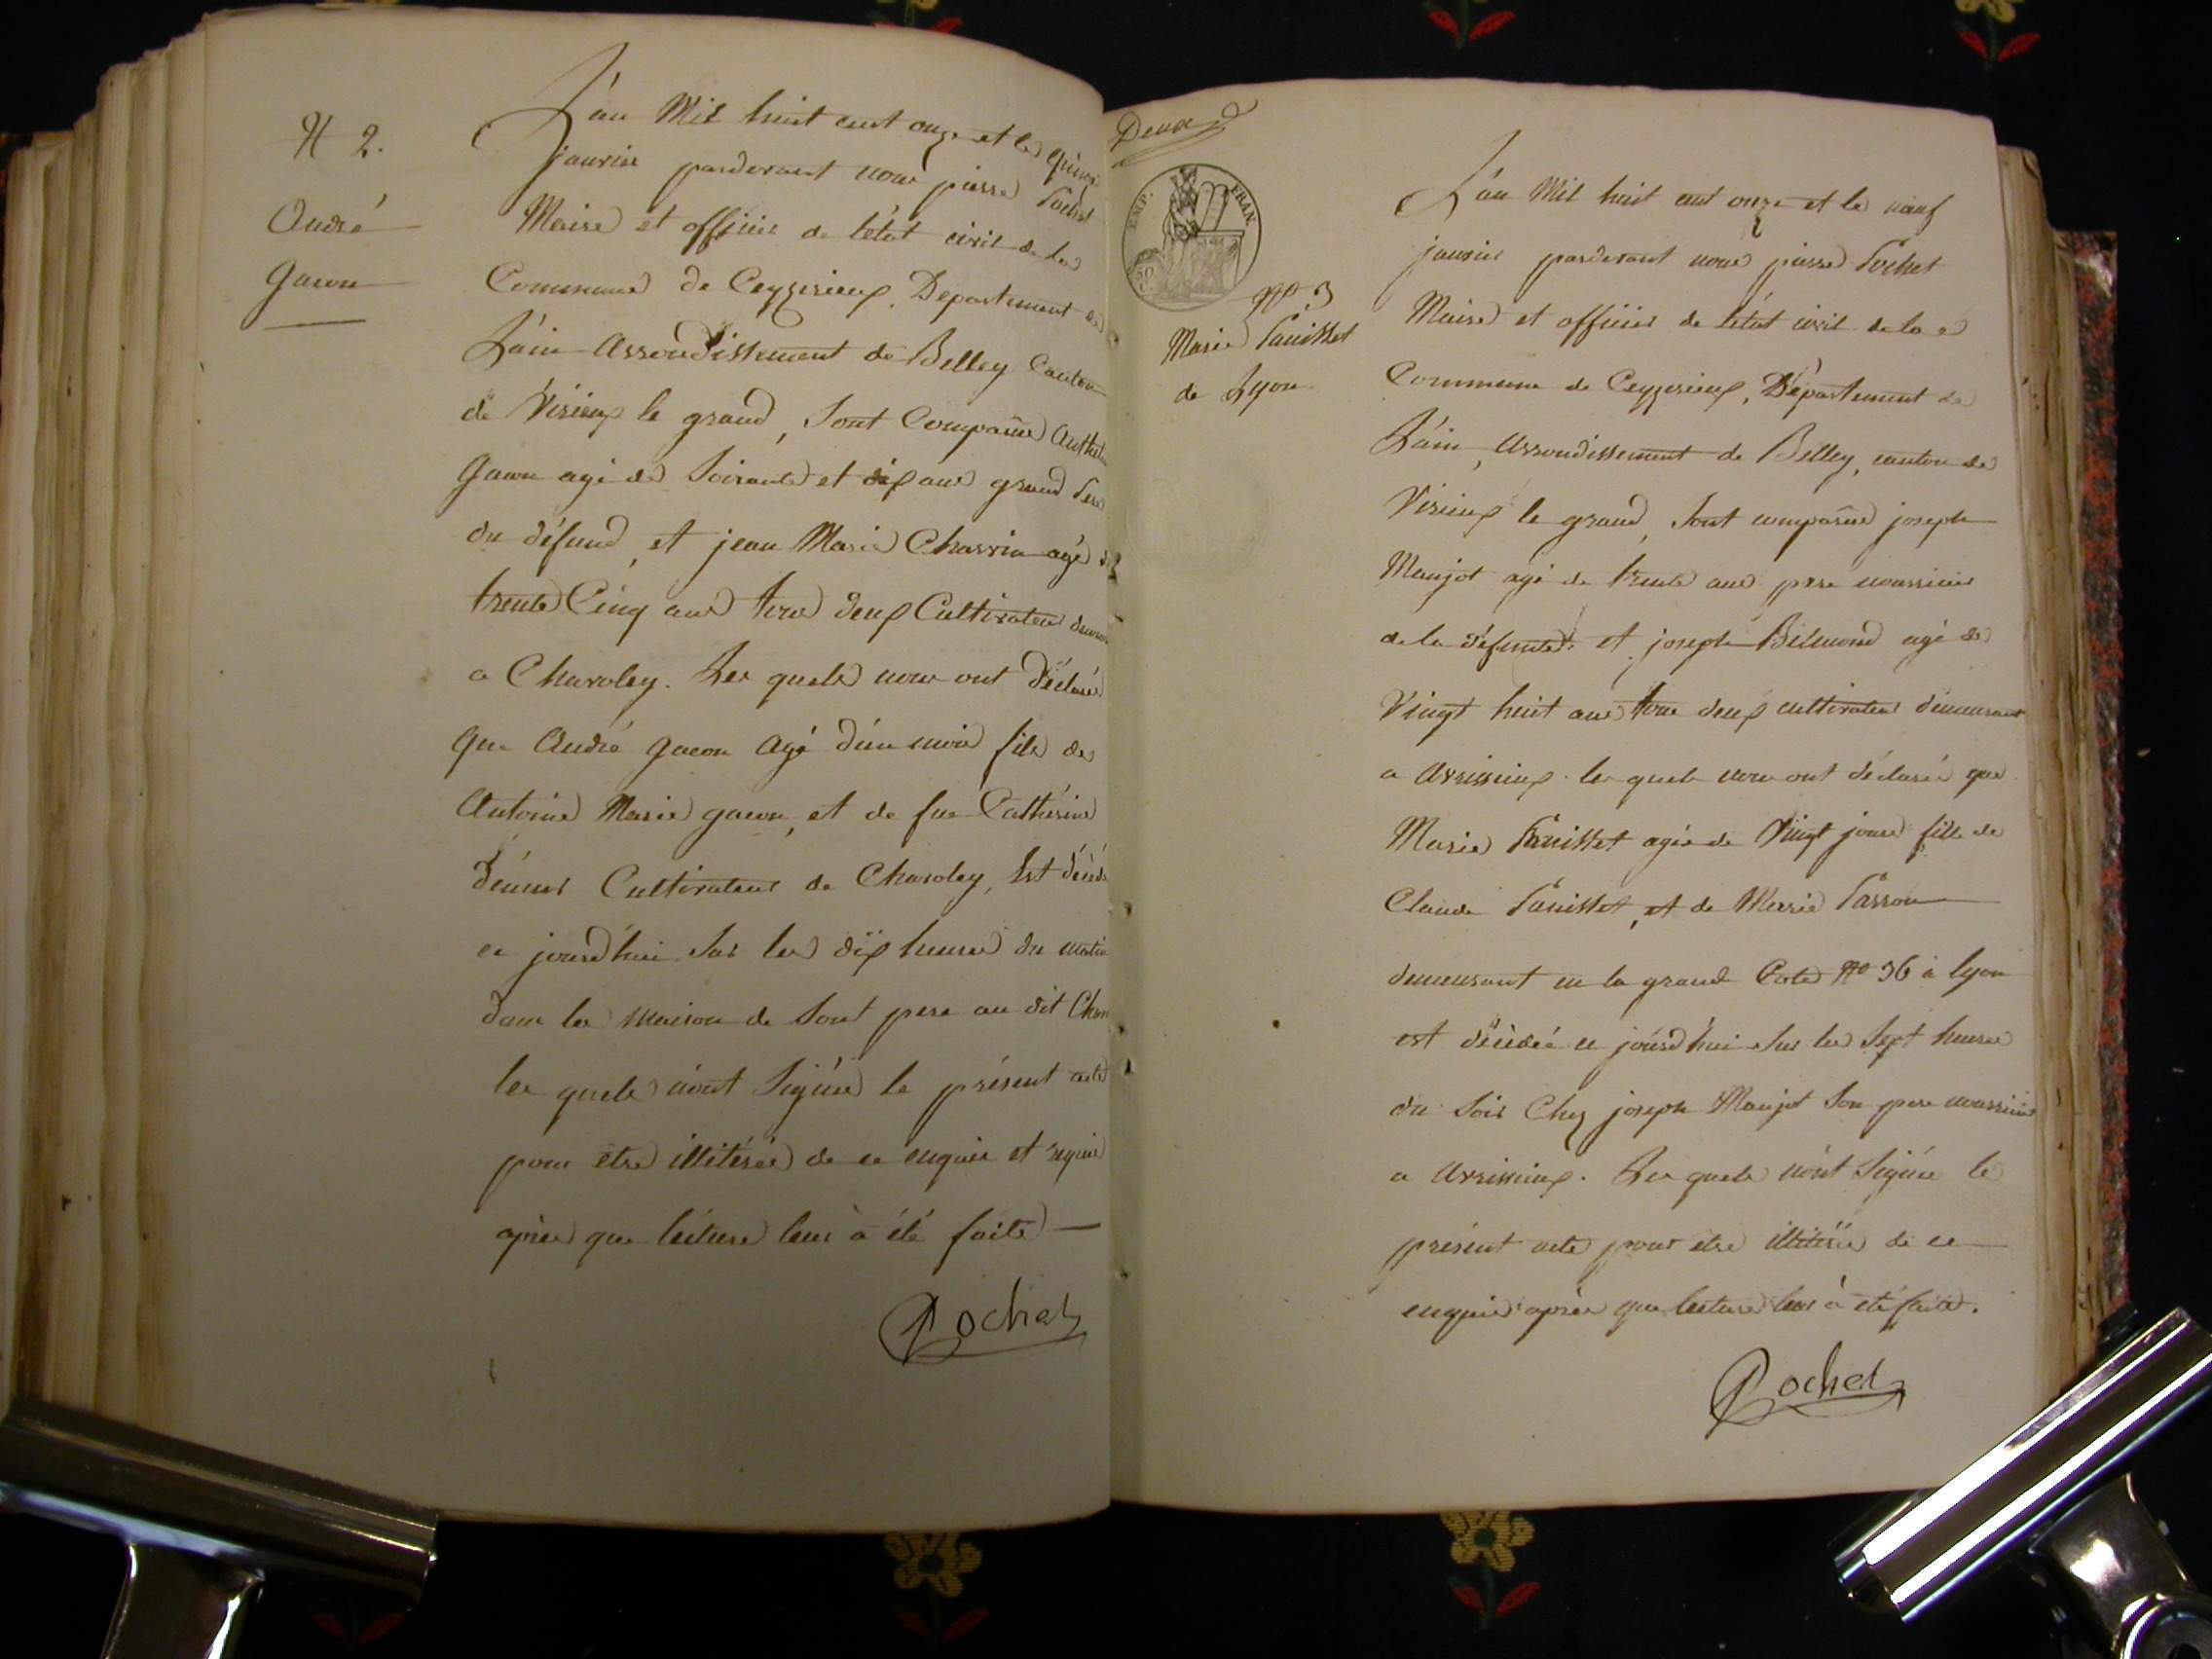 N 2.
André
Gacon
L'an Mil huit cent onze et le
janvier pardevant nous pierre Pochet
Maire et officier de l'état civil de la
Commune de Ceyzerieux, Departement de
L'ain Arrondissement de Belley Canton
de Virieux le grand, Sont Comparus Anthelme
Gacon agé de Soixante et dix ans grand Pere
du défund, et jean Marie Charvin agé de
trente Cinq ans tous deux Cultivateurs
a Charoley. Les quels nous ont Déclaré
que André gacon Agé d'un mois fils de
Antoine Marie gacon, et de fue Cathérine
Cultivateur de Charoley, Est décédé
ce jourd'hui Sur les dix heures du matin
dans la maison de Sont pere au dit
les quels n'ont Signés le présent acte
pour être illitérés de ce enquis et requis
après que lecture leur à été faite
Pochet
Deux
EMP. FRAN.
50 C.
No 3
Marie Panisset
de Lyon
L'an Mil huit cent onze et le neuf
janvier pardevant nous pierre Pochet
Maire et officier de l'état civil de la
Commune de Ceyzerieux, Département de
L'ain, Arrondissement de Belley, canton de
Virieux le grand, Sont comparus joseph
Manjot agé de trente ans pere nourricier
de la défunte, et joseph Bilmond agé de
Vingt huit ans tous deux cultivateurs demeurant
a Avrissieux. les quels nous ont déclarés que
Marie Panisset agée de Vingt jours fille de
Claude Panisset, et de Marie Passon
demeurant en la grand Cote No 36 à lyon
est décédée ce jourd'hui Sur les Sept heures
du Soir Chez joseph Manjot Son pere nourricier
a Avrissieux. Les quels n'ont Signés le
présent acte pour être illitérés de ce
enquis après que lecture leur à été faite.
Pochet